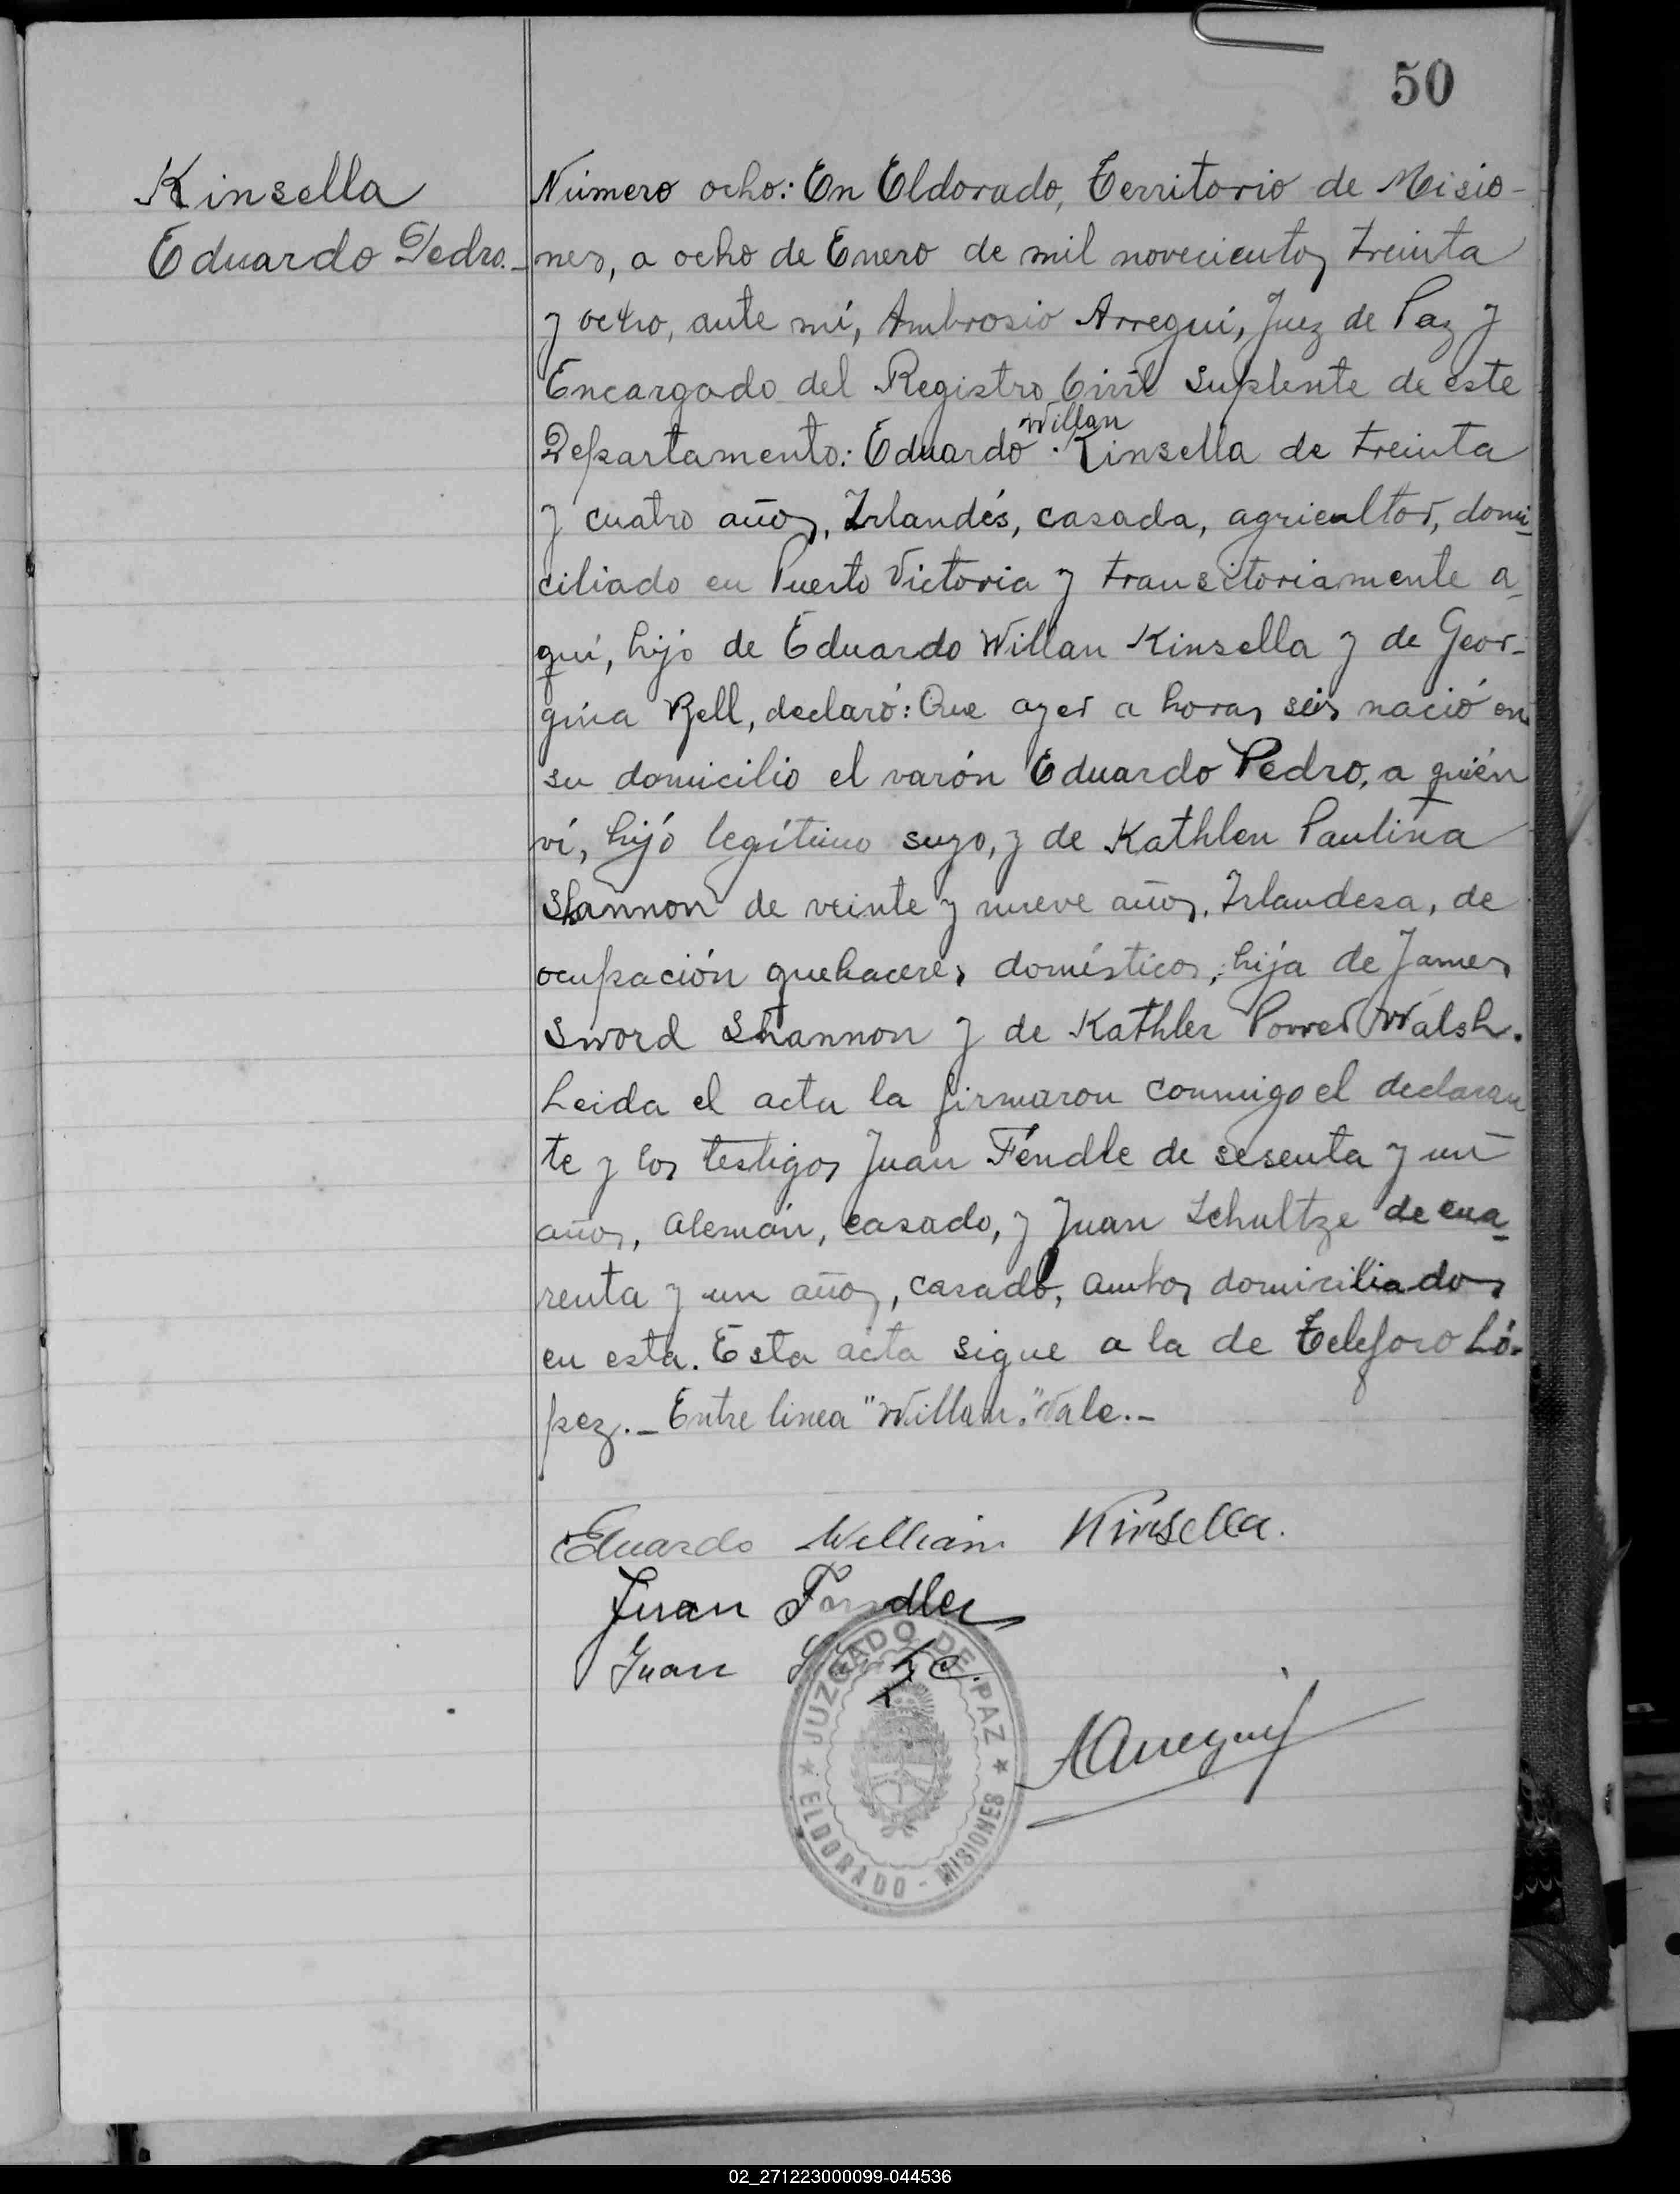 50
Kinsella
Eduardo Pedro._
Número ocho: En Eldorado, Territorio de Misio-
nes, a ocho de Enero de mil novecientos treinta
y ocho, ante mí, Ambrosio Arregui, Juez de Paz y
Encargado del Registro Civil Suplente de este
Willan
Departamento: Eduardo . Kinsella de treinta
y cuatro años, Irlandés, casada, agricultor, domi-
ciliado en Puerto Victoria y transitoriamente a-
quí, hijo de Eduardo Willan Kinsella y de Geor-
gina Bell, declaró: Que ayer a horas seis nació en
su domicilio el varón Eduardo Pedro, a quién
ví, hijo legítimo suyo, y de Kathlen Paulina
Shannon de veinte y nueve años, Irlandesa, de
ocupación quehaceres domésticos, hija de James
Sword Shannon y de Kathler Power Walsh.
Leida el acta la firmaron conmigo el declaran
te y los testigos Juan Féndle de sesenta y un
años, Alemán, casado, y Juan Schultze de cua-
renta y un años, casado, ambos domiciliados
en esta. Esta acta sigue a la de Telesforo Ló-
pez._ Entre linea "Willan." Vale.-
Eduardo William Kinsella.
Juan Fendler
Juan
AArregui
JUZGADO DE PAZ
★ ELDORADO - MISIONES ★
02_271223000099-044536